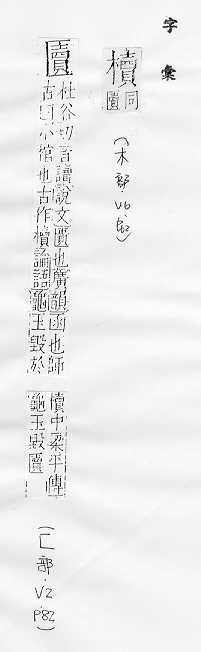 字彙
櫝
同
匵
(木部 V6. P.82)
匵
杜谷切音讀說文匱也廣韻函也師
古曰小棺也古作櫝論語龜玉毀於
櫝中梁平傳
龜玉毀匵
(匚部.V2.P82)